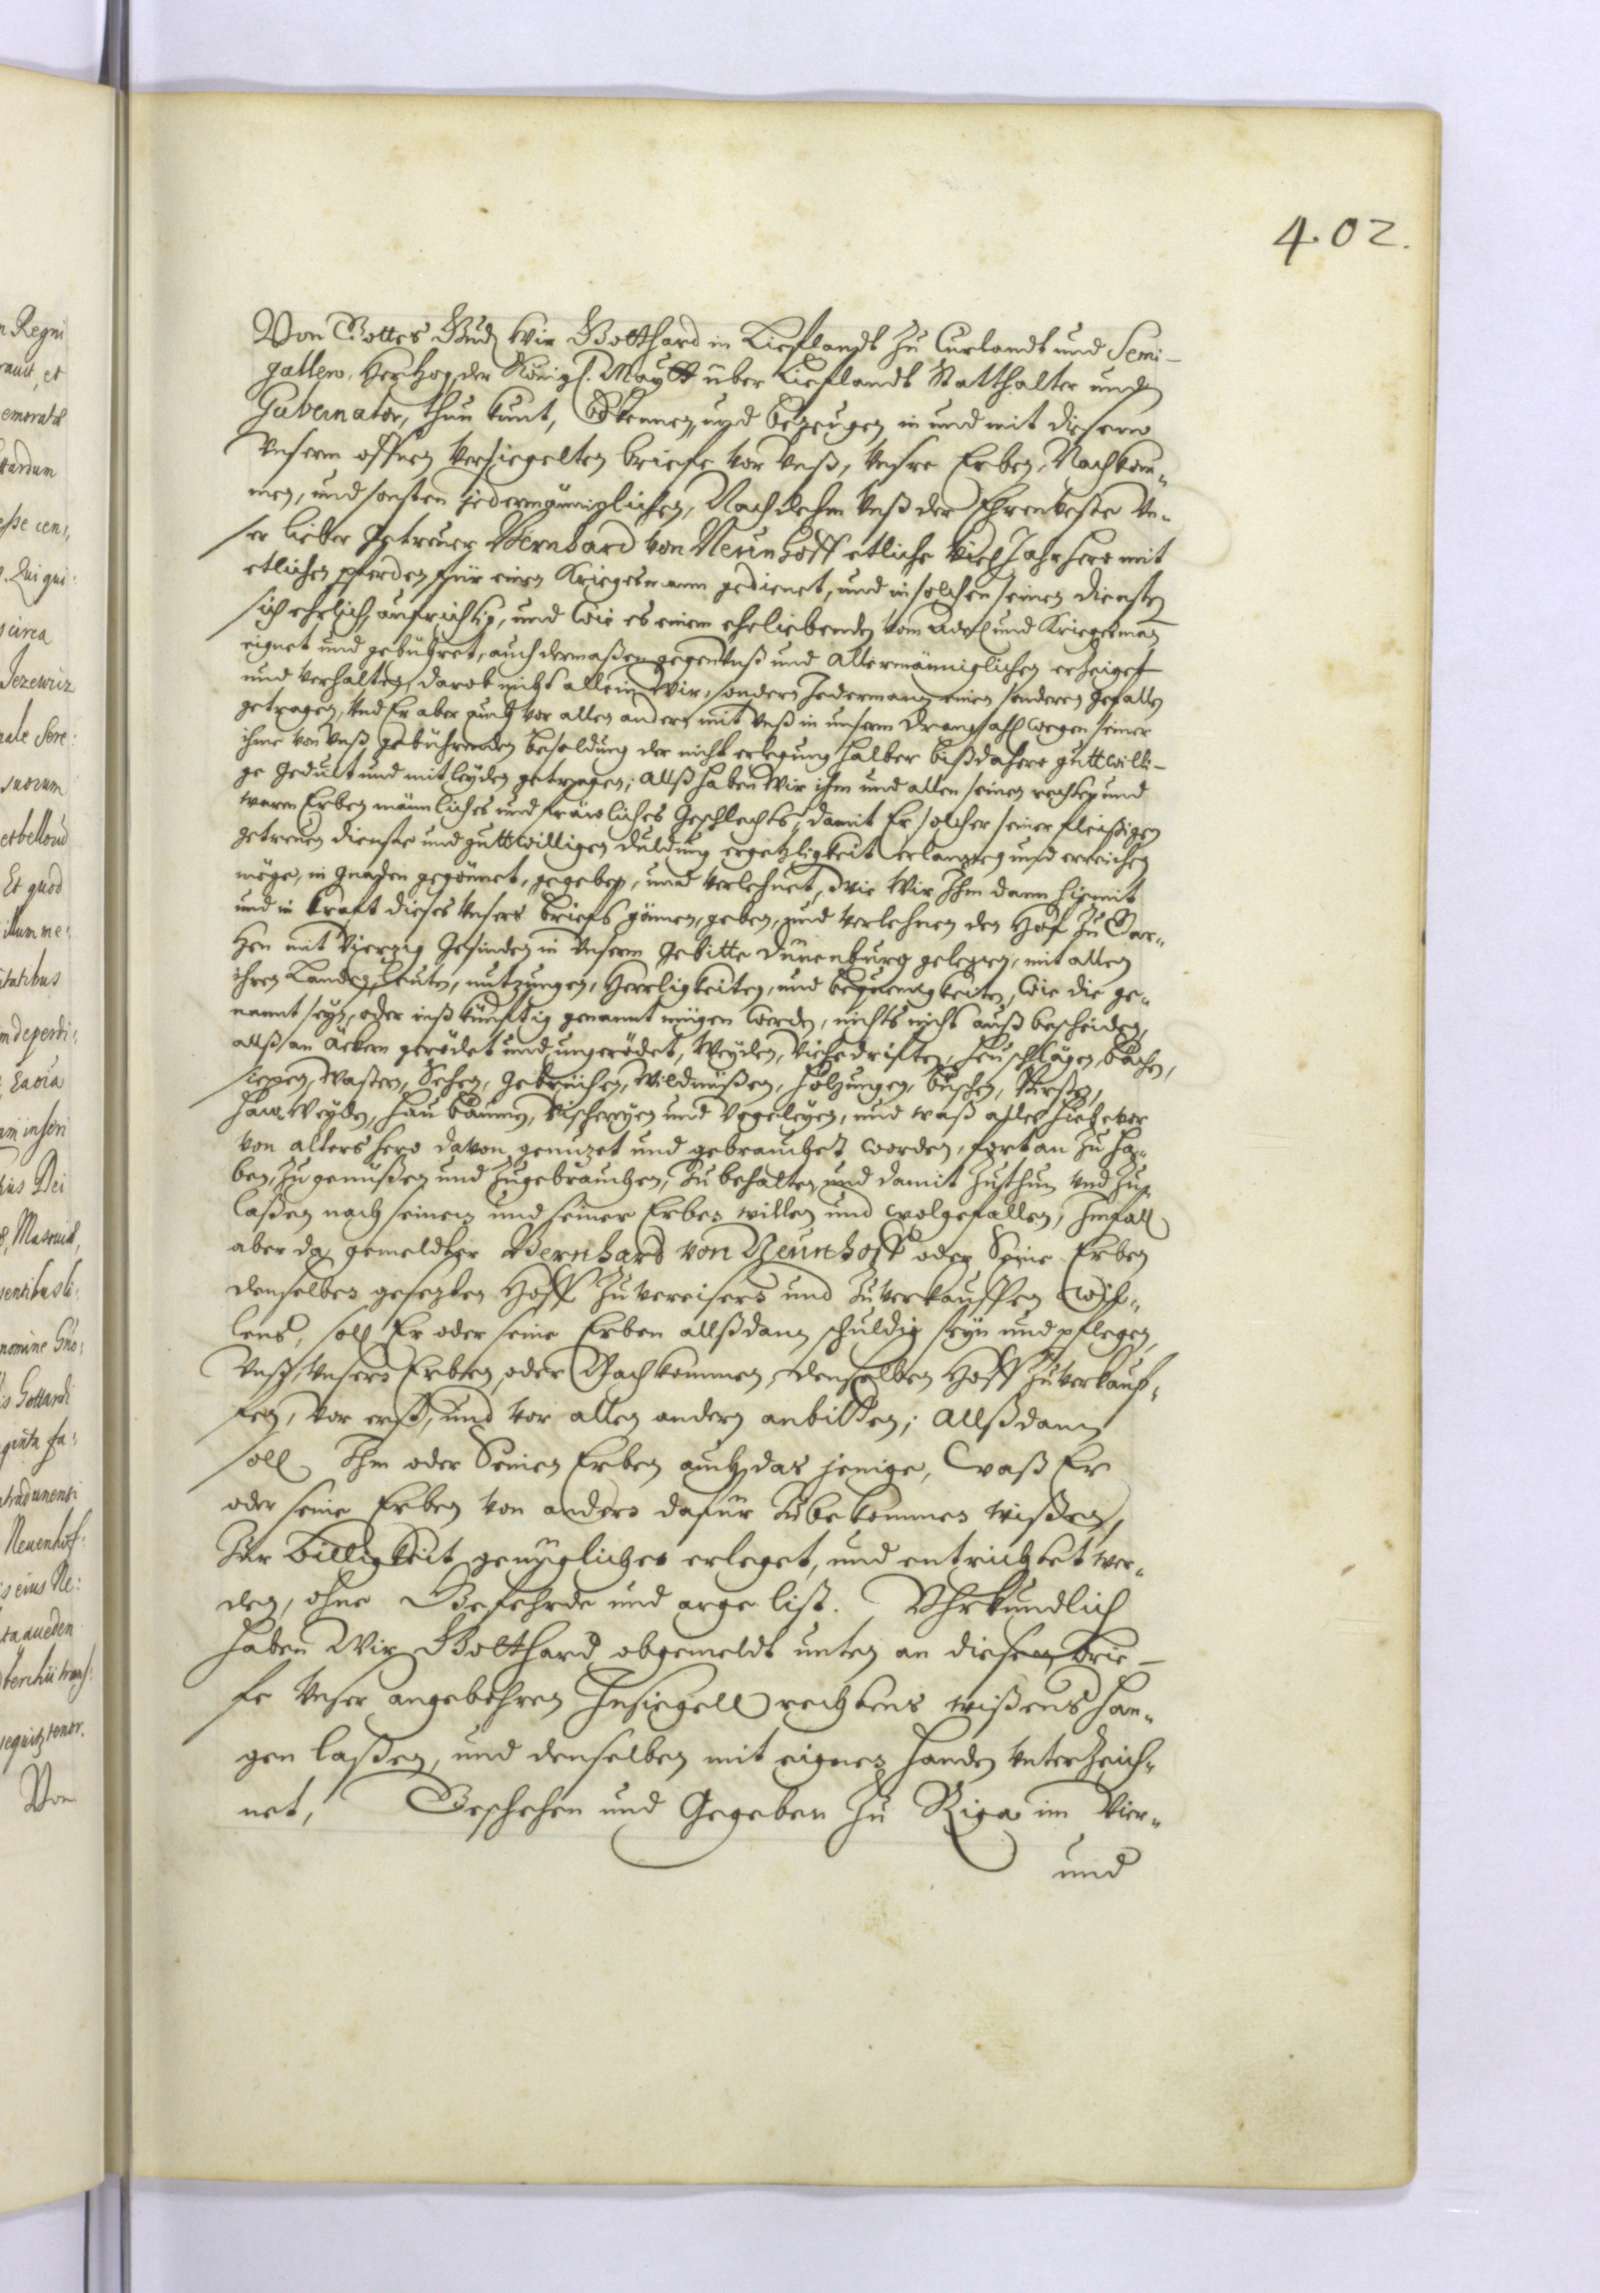 402.
Von Gottes Gnad Wir Gotthard in Lieflandt zu Curlandt und Semi-
gallen. Hertzog, der Königl. Maytt über Lieflandt Statthalter und
Gubernator, thun kunt, bekennen, und bezeugen in und mit diesem
Unserm offnen versiegelten briefe vor Unß, Unsre Erben, Nachkom-
men, und sonsten jedermänniglichen, Nachdehm Unß der Ehrenveste Un-
ser lieber getreuer Bernhard von Neunhoff etliche viel Jahr hero mit
etlichen pferden für einen Kriegesmann gedienet, und in solchen seinen diensten
sich ehrlich, aufrichtig, und wie es einem ehrliebenden vom Adel und Kriegesman
eignet und gebühret, auch dermaßen gegen Unß und allermänniglichen erzeiget
und verhalten, darob nicht allein Wir, sondern Jedermann einen sonderen gefallen
getragen, Und Er aber auch vor allen andern mit Unß in unserm drangsahl wegen seiner
ihme von Unß gebührenden besoldung der nicht erlegung halber bißdahero guttwilli-
ge gedult und mitleyden getragen; Allß haben Wir ihm und allen seinen rechten und
waren Erben männliches und fräwliches Geschlechts, damit Er solcher seiner fleißigen
getreuen dienste und guttwilligen duldung ergetzligkeit erlangen und erreichen
möge, in gnaden gegönnet, gegeben, und verlehnet, Wie Wir Ihm dann hiemit
und in kraft dieses Unsers briefs gönnen, geben, und verlehnen den Hoff zu
hen mit vierzig Gesinden in Unserm Gebitte Dünenburg gelegen, mit allen
ihren Landen, Leuten, nutzungen, Herrligkeiten, und bequemigkeiten, wie die ge-
nannt seyn, oder inß künftig genannt mügen werden, nichts nicht auß bescheiden,
allß an Äckern gerödet und ungerödet, Weyden, Viehedriften, Heuschlägen, bächen,
siepen, Wassern, Sehen, gebrüchen, Wildnüßen, Holzungen, büschen,
Haw Weyden, Hau bäumen, Vischereyen und Vogeleyen, und waß alles hiebevor
von alters hero davon genuzet und gebrauchet worden, fortan zu ha-
ben, zu genüßen und zugebrauchen, zu behalten und damit zuthun und zu-
laßen nach seinem und seiner Erben willen und wolgefallen, Imfall
aber da gemeldter Bernhard von Neunhoff oder Seine Erben
denselben gesezten Hoff zu vereusern und zu verkauffen wil-
lens, soll Er oder seine Erben allßdann schuldig seyn und pflegen,
Unß, Unsern Erben, oder Nachkommen, denselben Hoff zu verkauf-
fen, vor erst, und vor allen andern anbitten; Allßdann
soll Ihm oder Seinen Erben auch das jenige, waß Er
oder seine Erben von andern dafür zubekommen wißen,
zur billigkeit genüglichen erleget, und entrichtet wer-
den, ohne Gefehrde und arge list. Uhrkundlich
haben Wir Gotthard obgemeldt unten an diesen brie-
fe Unser angebohren Insiegell rechtens wißens han-
gen laßen, und denselben mit eignen Handen unterzeich-
net, Geschehen und Gegeben zu Riga im Vier-
und